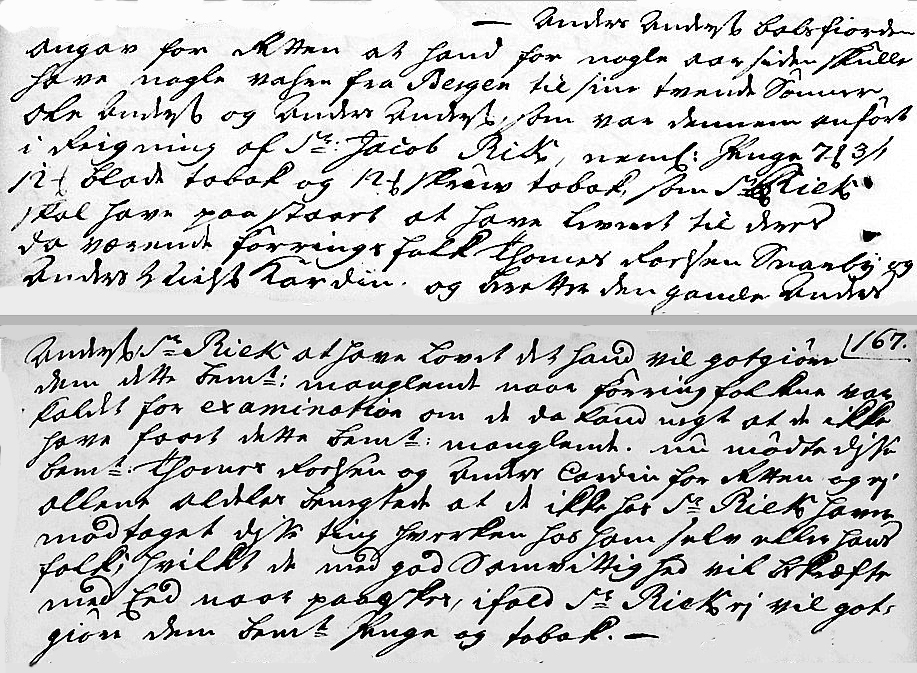 — Anders Anders: balsfiorden
angav for Retten at hand for nogle aar siden skulle
have nogle vahre fra Bergen til sine tvende Sønner,
Ole Anders: og Anders Anders:, som var dennem anført
i Reigning af Sr: Jacob Riek, neml: Penge
12 blade tobak og 12 skrāw tobak, som Sr Riek
skal have paastaaet at have leveret til deres
da værende førrings folk Thomes Joensen Svarby og
Anders Niels: Kardin. og beretter den gamle Anders
Anders: Sr Riek at have lovet det hand vil gotgiøre 167.
dem dette bemt: manglende naar førringfolkene var
kaldet for examination om de da kand negte at de ikke
have faaet dette bemt: manglende. nu mødte disse
bemt: Thomes Joensen og Anders Cardin for Retten og ej
allene aldeles benegtede at de ikke hos Sr Riek have
modtaget disse ting hverken hos ham selv eller hans
folk, hvilket de med god Samvittighed vil bekræfte
med Eed naar paaesker, ifald Sr Riek ej vil got-
giøre dem bemt Penge og tobak. —